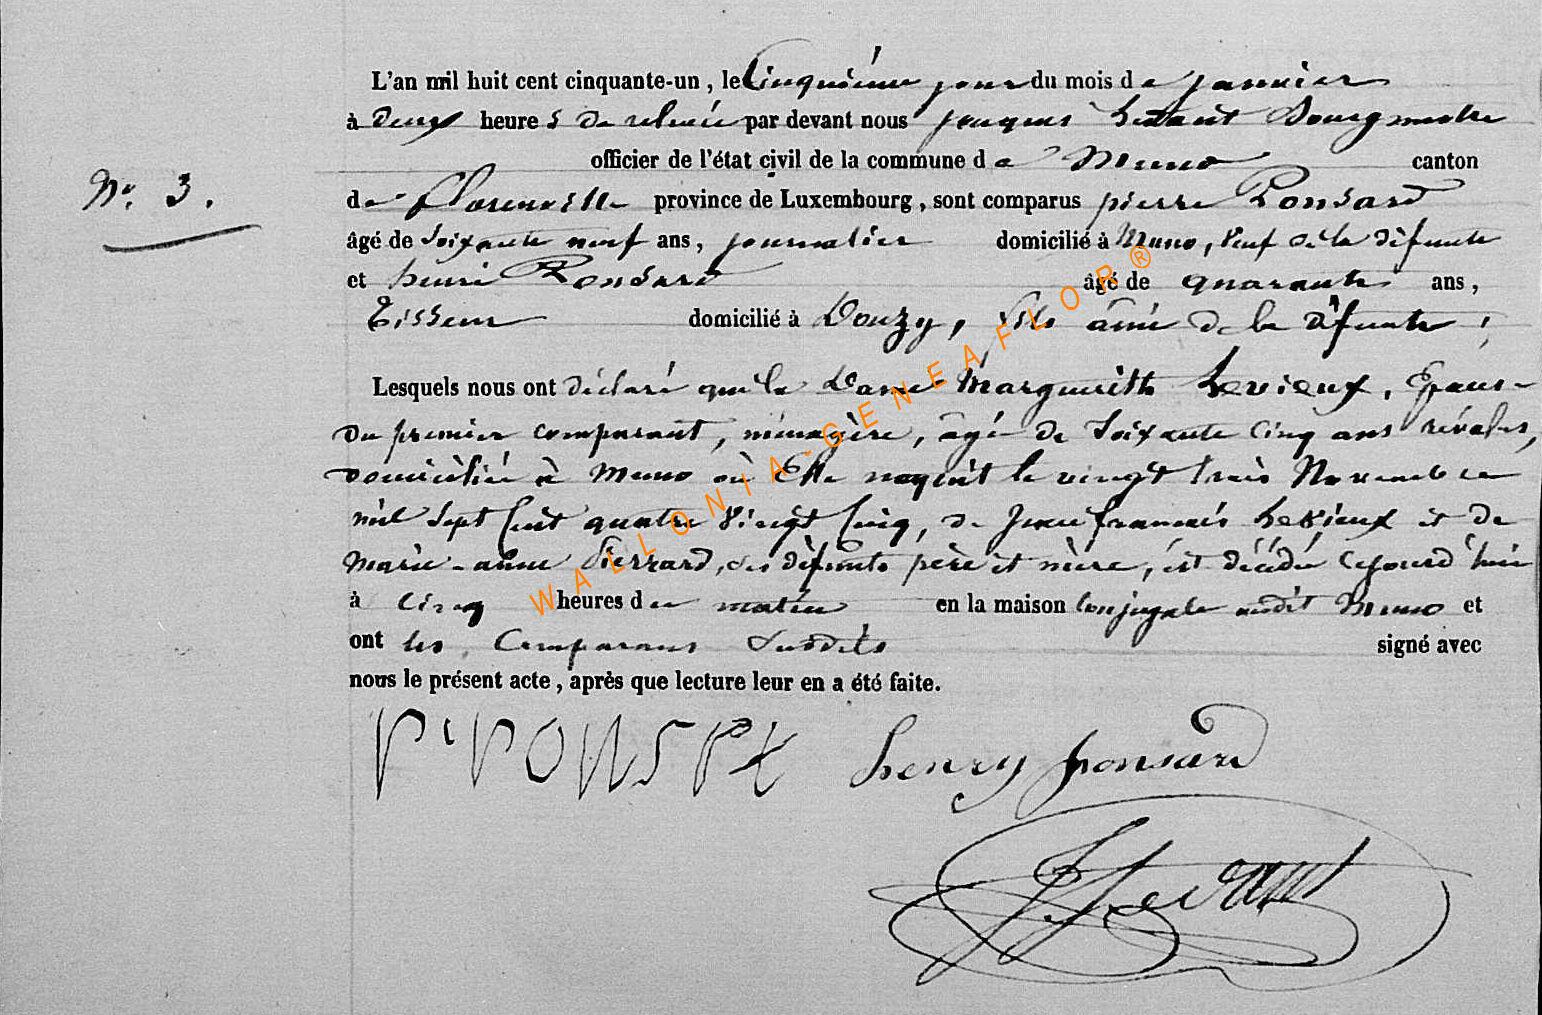 L'an mil huit cent cinquante-un, le Cinquième jour du mois de janvier
à deux heures de relevée par devant nous jacques Bourgmestre
officier de l'état civil de la commune de Muno canton
N° 3. de florenville province de Luxembourg, sont comparus pierre Ponsard
âgé de Soixante neuf ans, journalier domicilié à Muno, veuf de la défunte
et henri Ponsard âgé de quarante ans,
Tisseur domicilié à Douzy, fils ainé de la défunte ;
Lesquels nous ont déclaré que la Dame Marguerith Levieux, Epouse
du premier comparant, ménagère, âgée de Soixante Cinq ans révolus,
domiciliée à Muno où Elle naquit le vingt trois Novembre
mil Sept Cent quatre Vingt Cinq, de Jean françois Levieux et de
Marie-anne Pierrard, ses défunts père et mère, est décédée Cejourd'hui
à Cinq heures du matin en la maison Conjugale audit Muno et
ont les Comparans Susdits signé avec
nous le présent acte, après que lecture leur en a été faite.
henry ponsard
WALLONIA-GENEAFLOR®